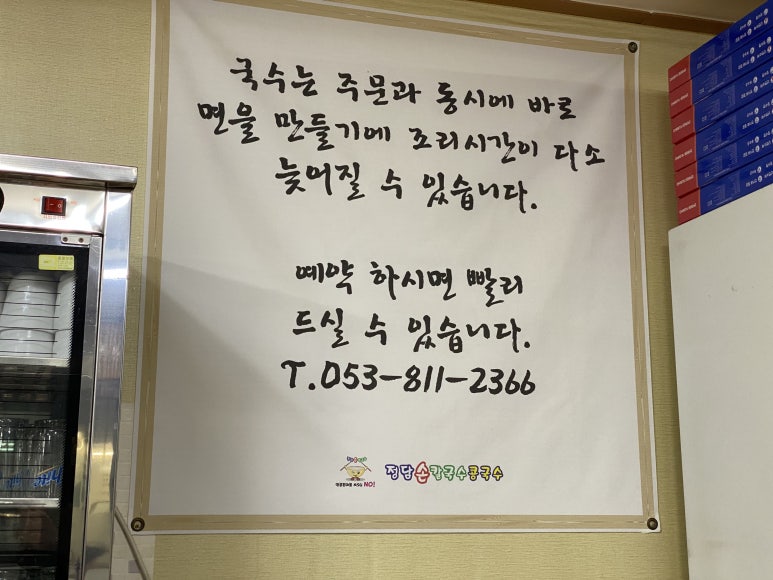 국수는 주문과 동시에 바로
면을 만들기에 조리시간이 다소
늦어질 수 있습니다.
예약 하시면 빨리
드실 수 있습니다.
T.053-811-2366
MSG NO!
정담손칼국수콩국수